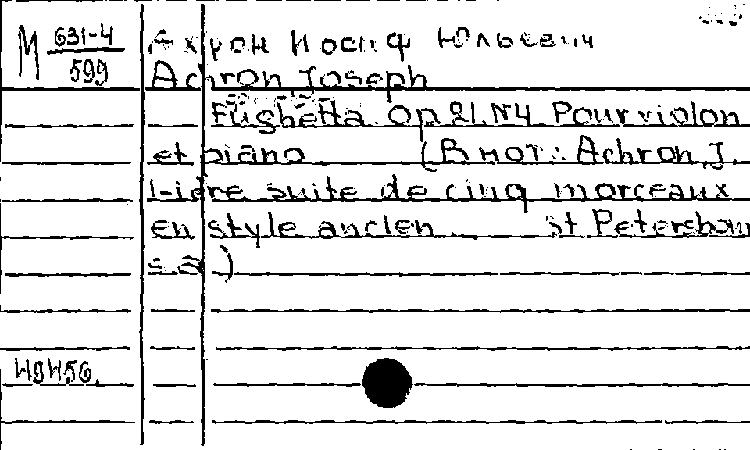 М 631-4
599
Ахрон Иосиф Юльевич
Achron Joseph
Fughetta Op 21. N4 Pour violon
et piano (В нот.: Achron, J.
1-ière suite de cinq morceaux
en style ancien St Petersbour
s.a.)